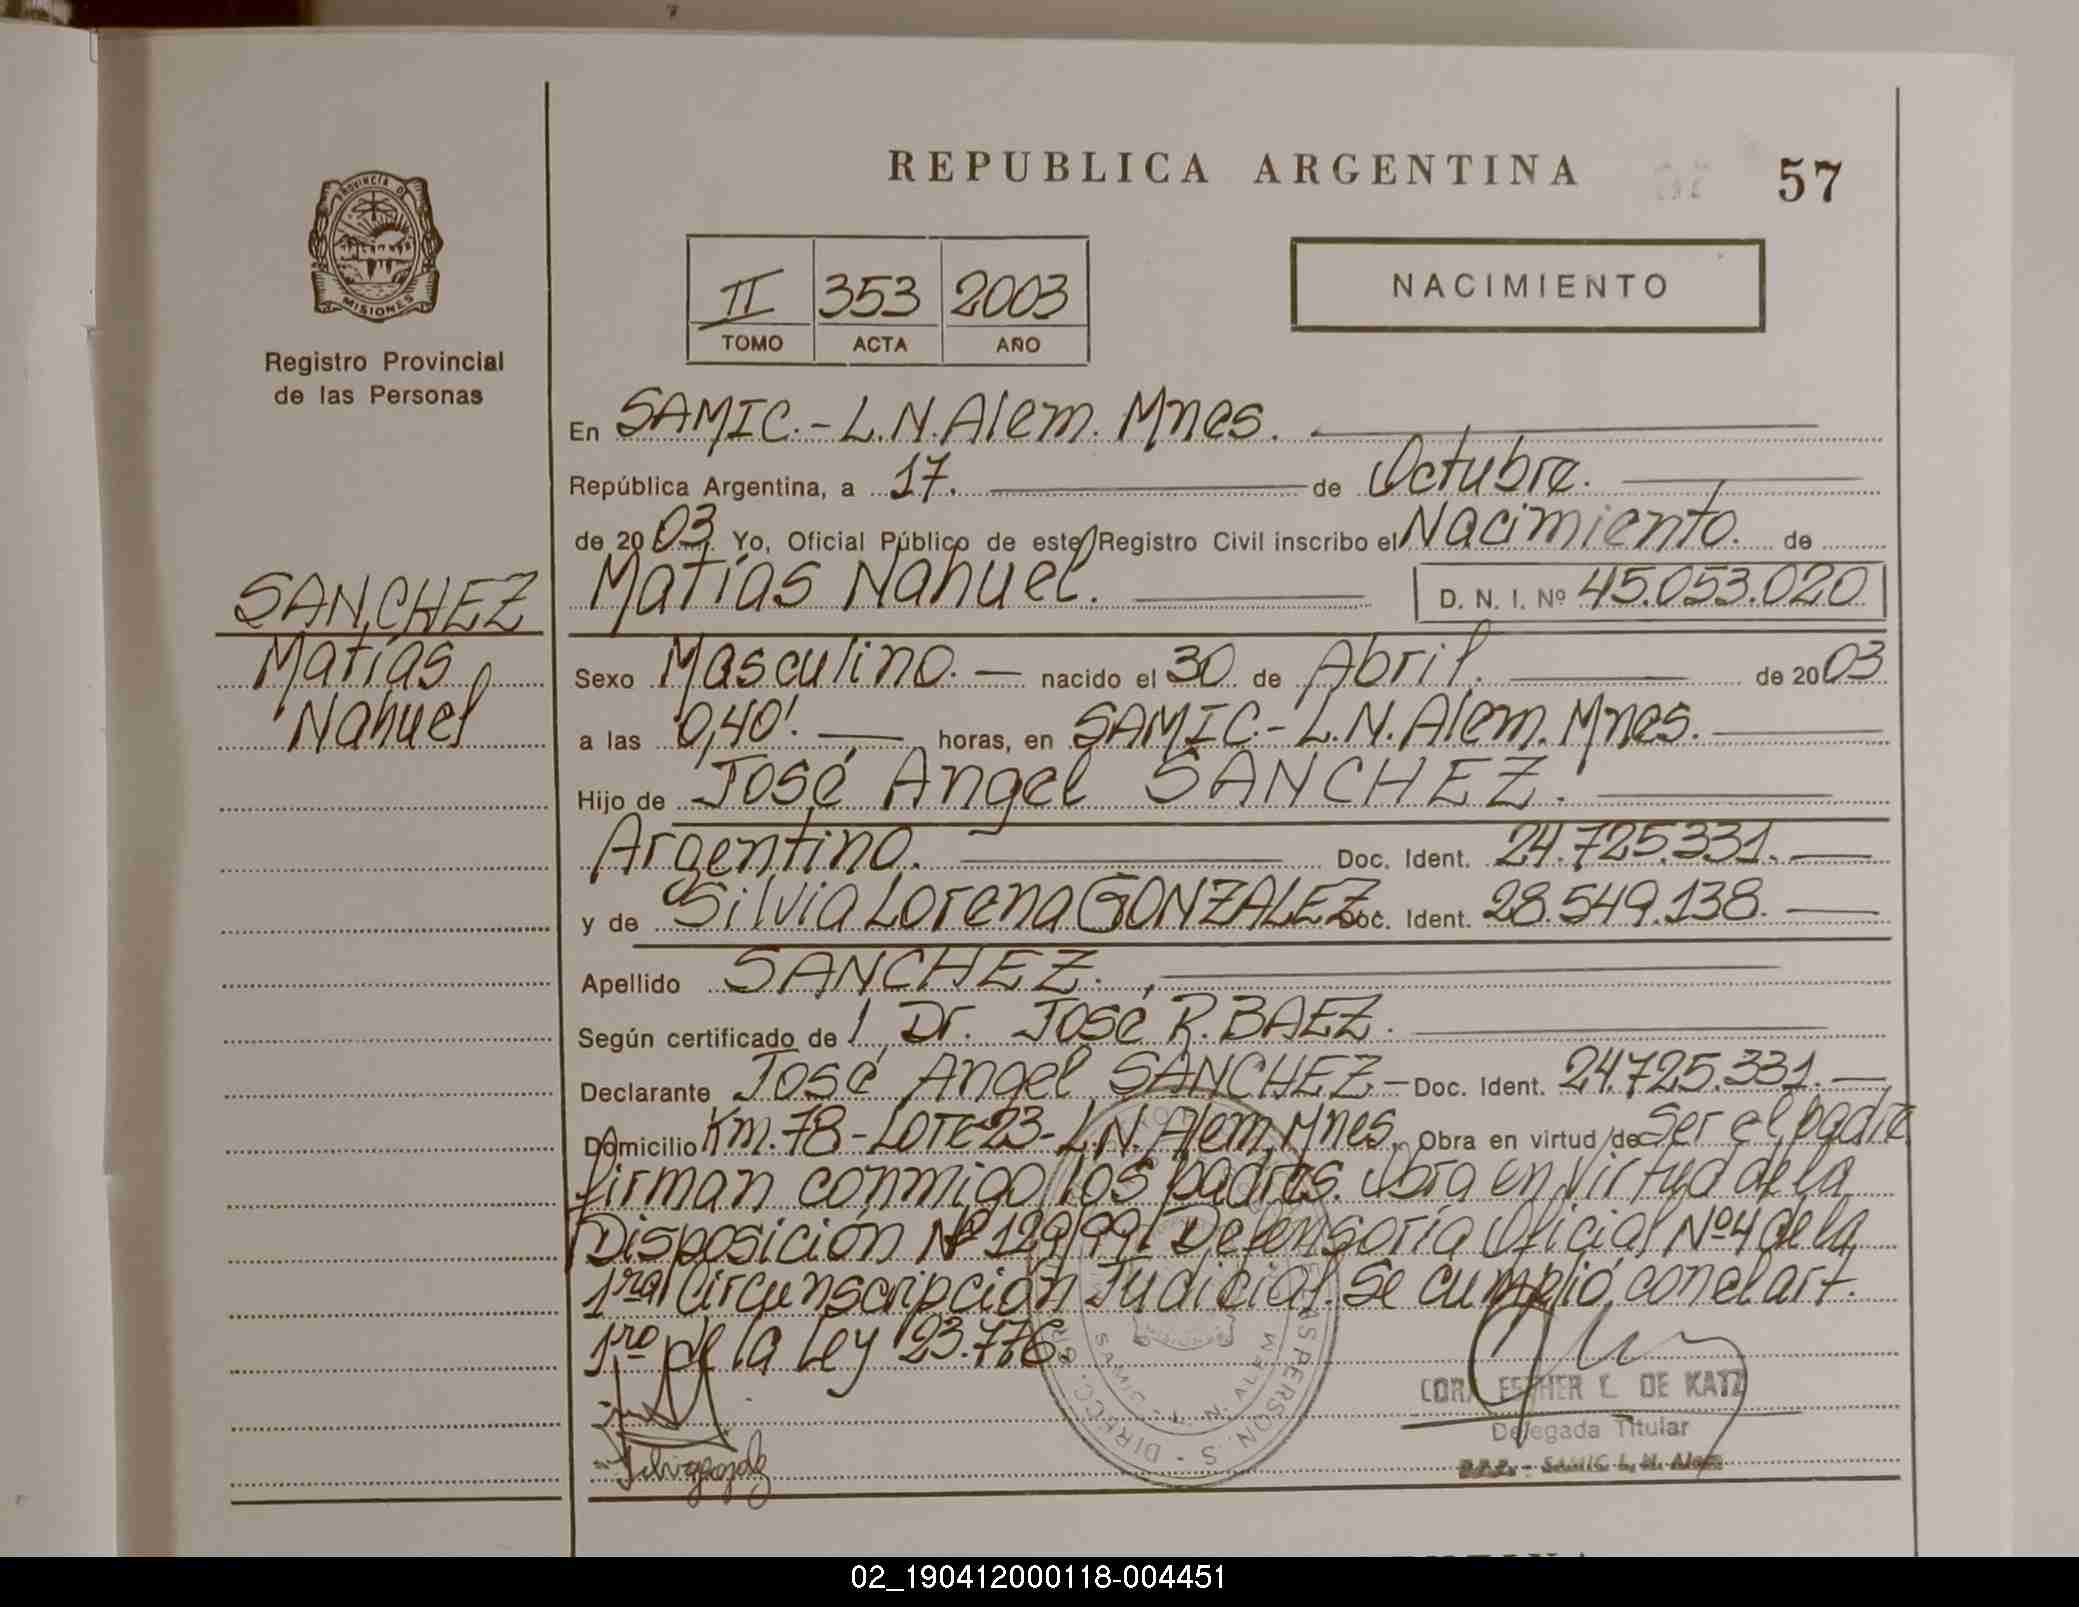 REPUBLICA ARGENTINA
57
PROVINCIA DE
MISIONES
Registro Provincial
de las Personas
II 353 2003
TOMO ACTA AÑO
NACIMIENTO
En SAMIC.- L.N.Alem. Mnes.
República Argentina, a 17. de Octubre.
de 2003 Yo, Oficial Público de este Registro Civil inscribo el Nacimiento. de
Matías Nahuel. D. N. I. Nº 45.053.020
SANCHEZ
Matías
Nahuel
Sexo Masculino. nacido el 30 de Abril. de 2003
a las 0,40'. horas, en SAMIC.- L.N.Alem. Mnes.
Hijo de José Angel SANCHEZ.
Argentino. Doc. Ident. 24.725.331.
y de Silvia Lorena GONZALEZ Doc. Ident. 28.549.138.
Apellido SANCHEZ.
Según certificado de Dr. José R. BAEZ.
Declarante José Angel SANCHEZ Doc. Ident. 24.725.331.
Domicilio Km.78-Lote 23-L.N.Alem, Mnes. Obra en virtud de ser el padre
firman conmigo los padres. Obra en virtud de la
Disposición Nº 129/99/ Defensoría Oficial Nº4 de la
1ra Circunscripción Judicial. Se cumplió con el art.
1ro de la Ley 23.776.
SAMIC - L. N. ALEM
CORA ESTHER L. DE KATZ
Delegada Titular
SAMIC L. N. Alem
02_190412000118-004451